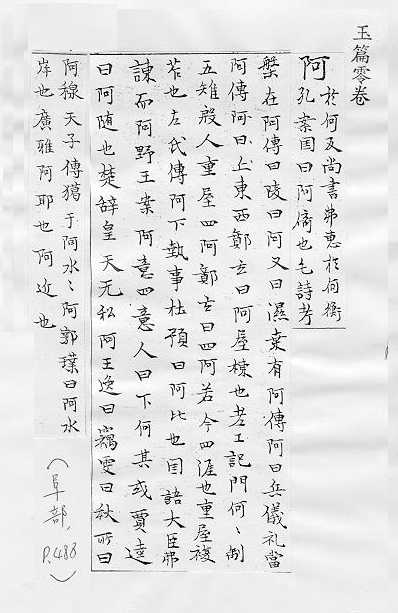 玉篇零卷
阿 於何反尚書弗惠於阿衡
孔安国曰阿倚也毛詩考
槃在阿傳曰陵曰阿又曰濕桒有阿傳阿曰美儀礼當
阿傳阿曰上東西鄭玄曰阿屋棟也考工記門阿〻制
五雉殷人重屋四阿鄭玄曰四阿若今四注也重屋複
笮也左氏傳阿下執事杜預曰阿比也国語大臣
諫而阿野王案阿意四意人曰下何其或賈逵
曰阿随也楚辞皇天无私阿王逸曰竊愛曰私所曰
阿穆天子傳獦于阿水〻阿郭璞曰阿水
岸也廣雅阿耶也阿近也
(阜部,
P.488)